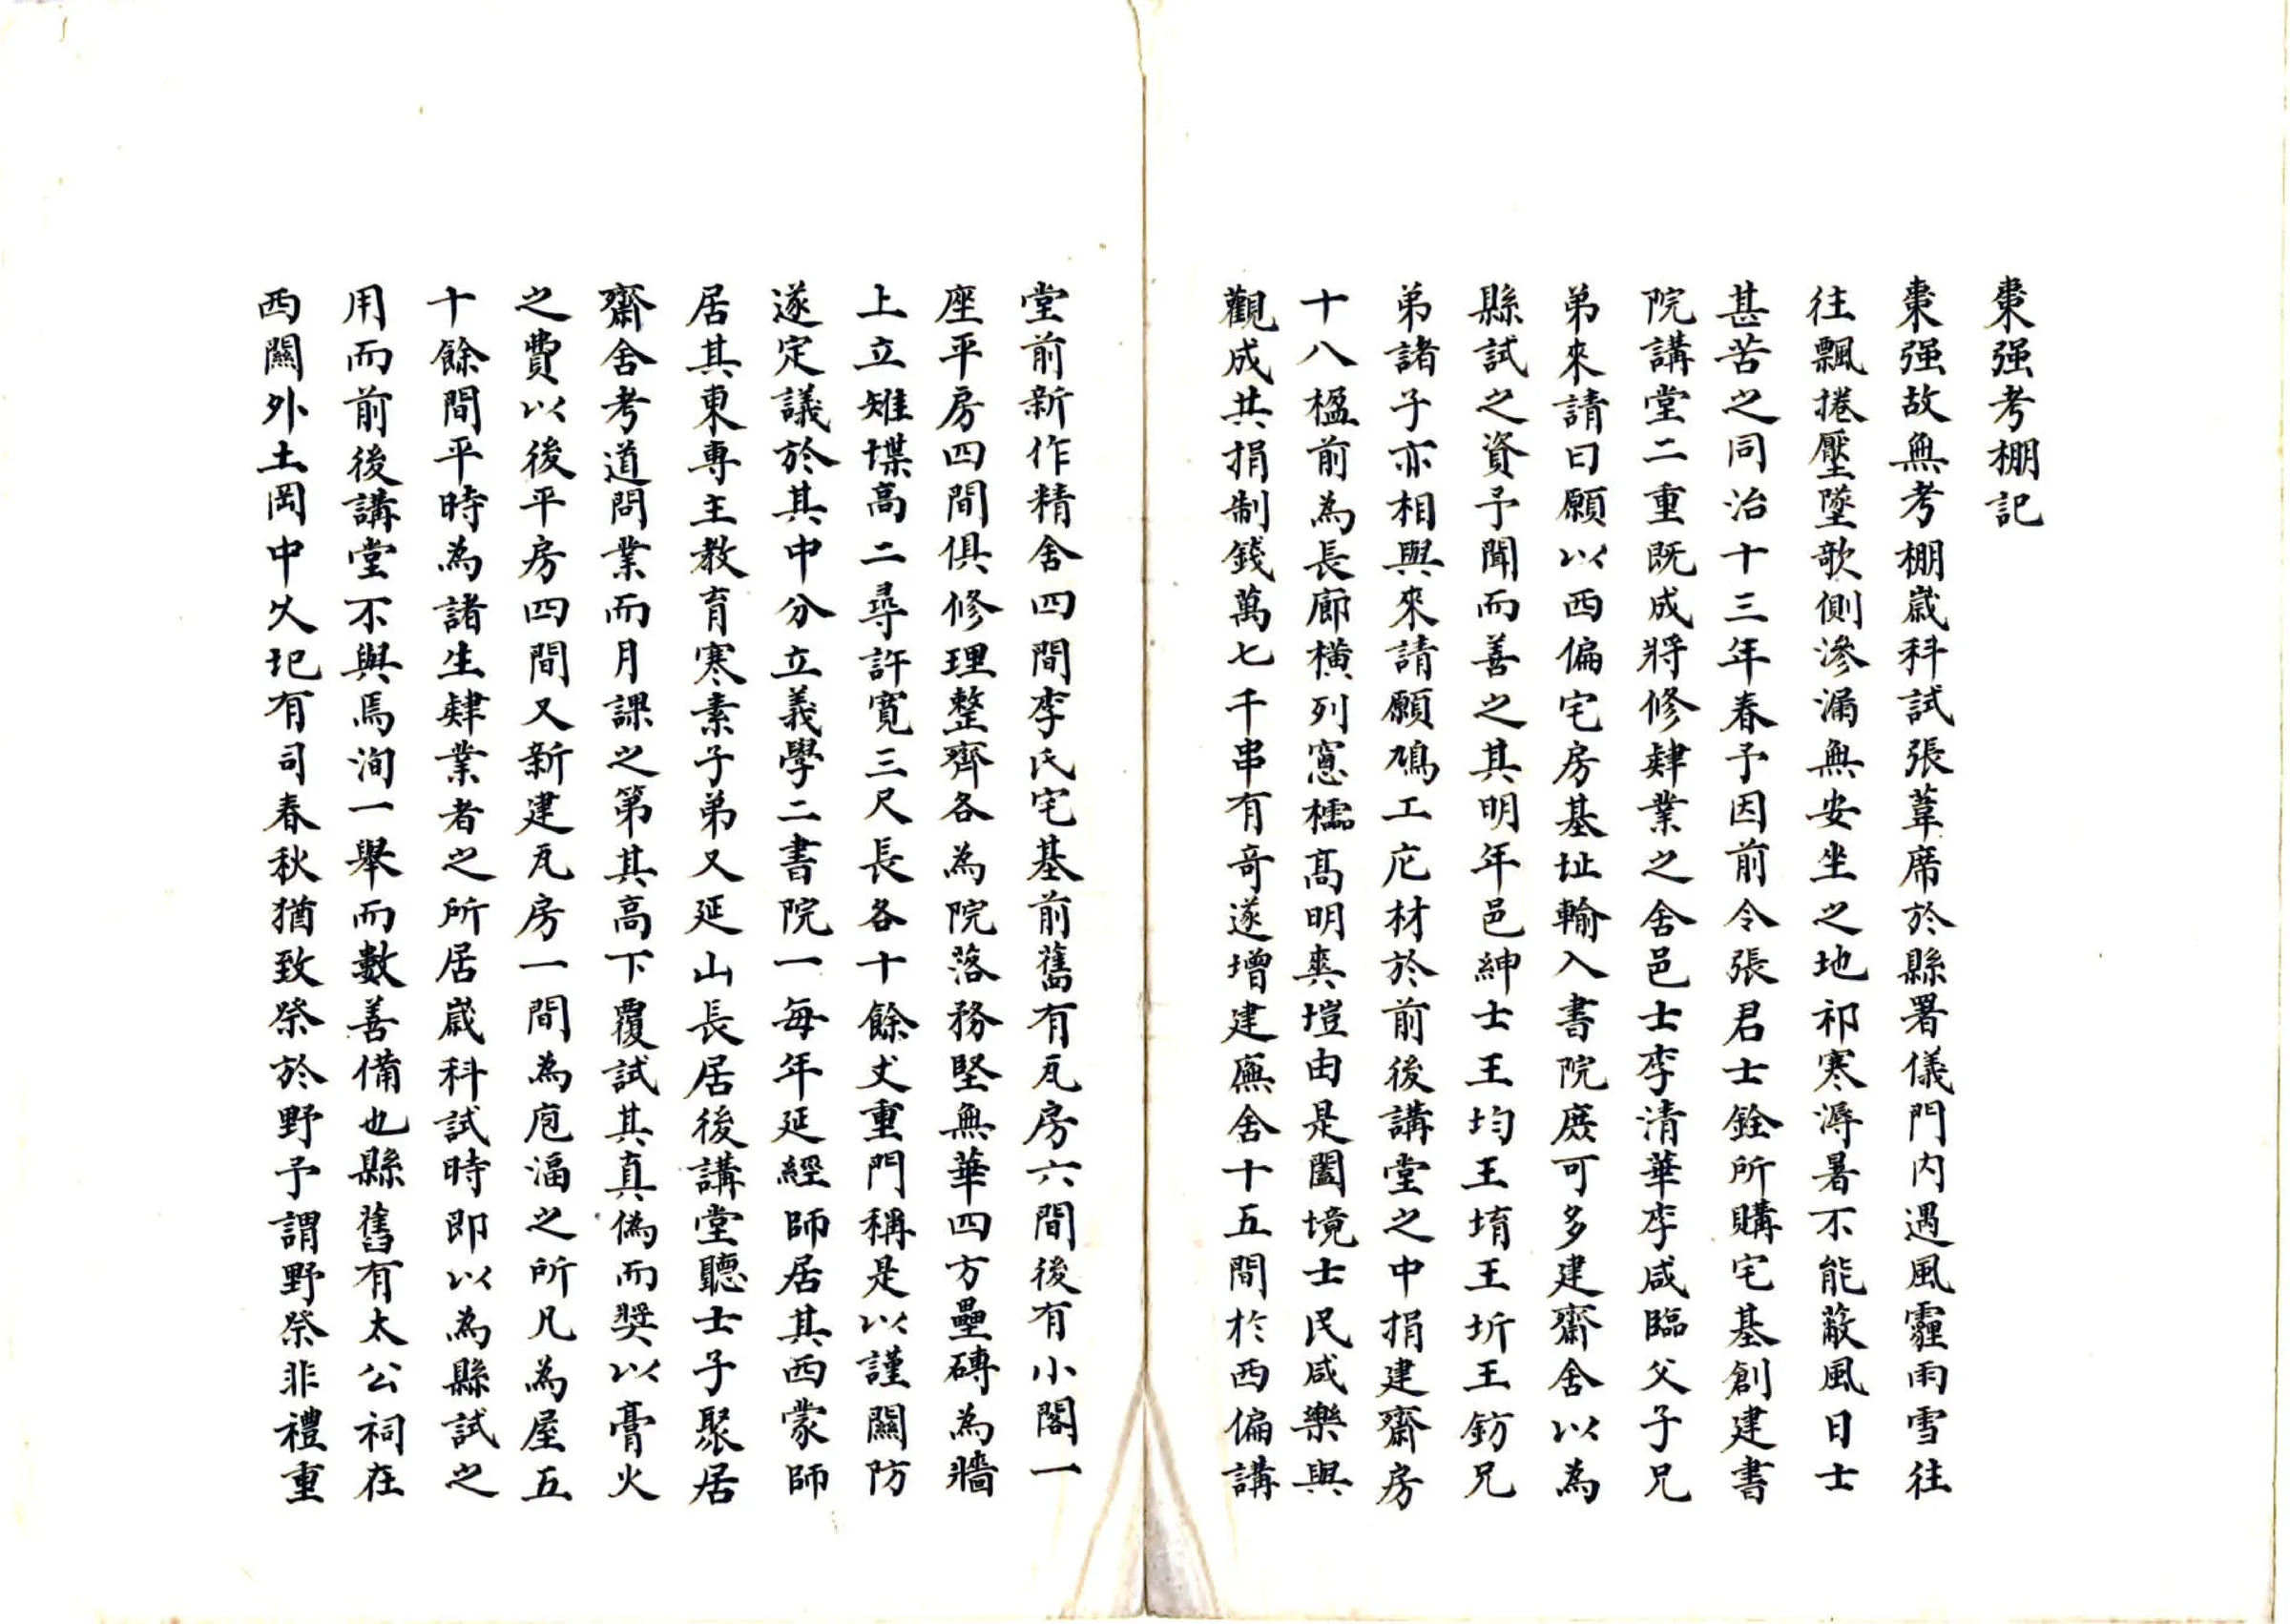 棗强考棚記
棗强故無考棚歲科試張葦席於縣署儀門内遇風霾雨雪往
往飄捲壓墜欹側滲漏無安坐之地祁寒溽暑不能蔽風日士
甚苦之同治十三年春予因前令張君士銓所購宅基創建書
院講堂二重既成將修肄業之舍邑士李清華李咸臨父子兄
弟來請曰願以西偏宅房基址輸入書院庻可多建齋舍以為
縣試之資予聞而善之其明年邑紳士王均王堉王圻王鈁兄
弟諸子亦相與來請願鳩工庀材於前後講堂之中捐建齋房
十八楹前為長廊橫列窻檽高明爽塏由是闔境士民咸樂與
觀成共捐制錢萬七千串有奇遂增建廡舍十五間於西偏講
堂前新作精舍四間李氏宅基前舊有瓦房六間後有小閣一
座平房四間俱修理整齊各為院落務堅無華四方壘磚為牆
上立雉堞高二尋許寬三尺長各十餘丈重門稱是以謹關防
遂定議於其中分立義學二書院一每年延經師居其西蒙師
居其東專主教育寒素子弟又延山長居後講堂聽士子聚居
齋舍考道問業而月課之第其高下覆試其真偽而奬以膏火
之費以後平房四間又新建瓦房一間為庖湢之所凡為屋五
十餘間平時為諸生肄業者之所居歲科試時即以為縣試之
用而前後講堂不與焉洵一舉而數善備也縣舊有太公祠在
西關外土岡中久圮有司春秋猶致祭於野予謂野祭非禮重